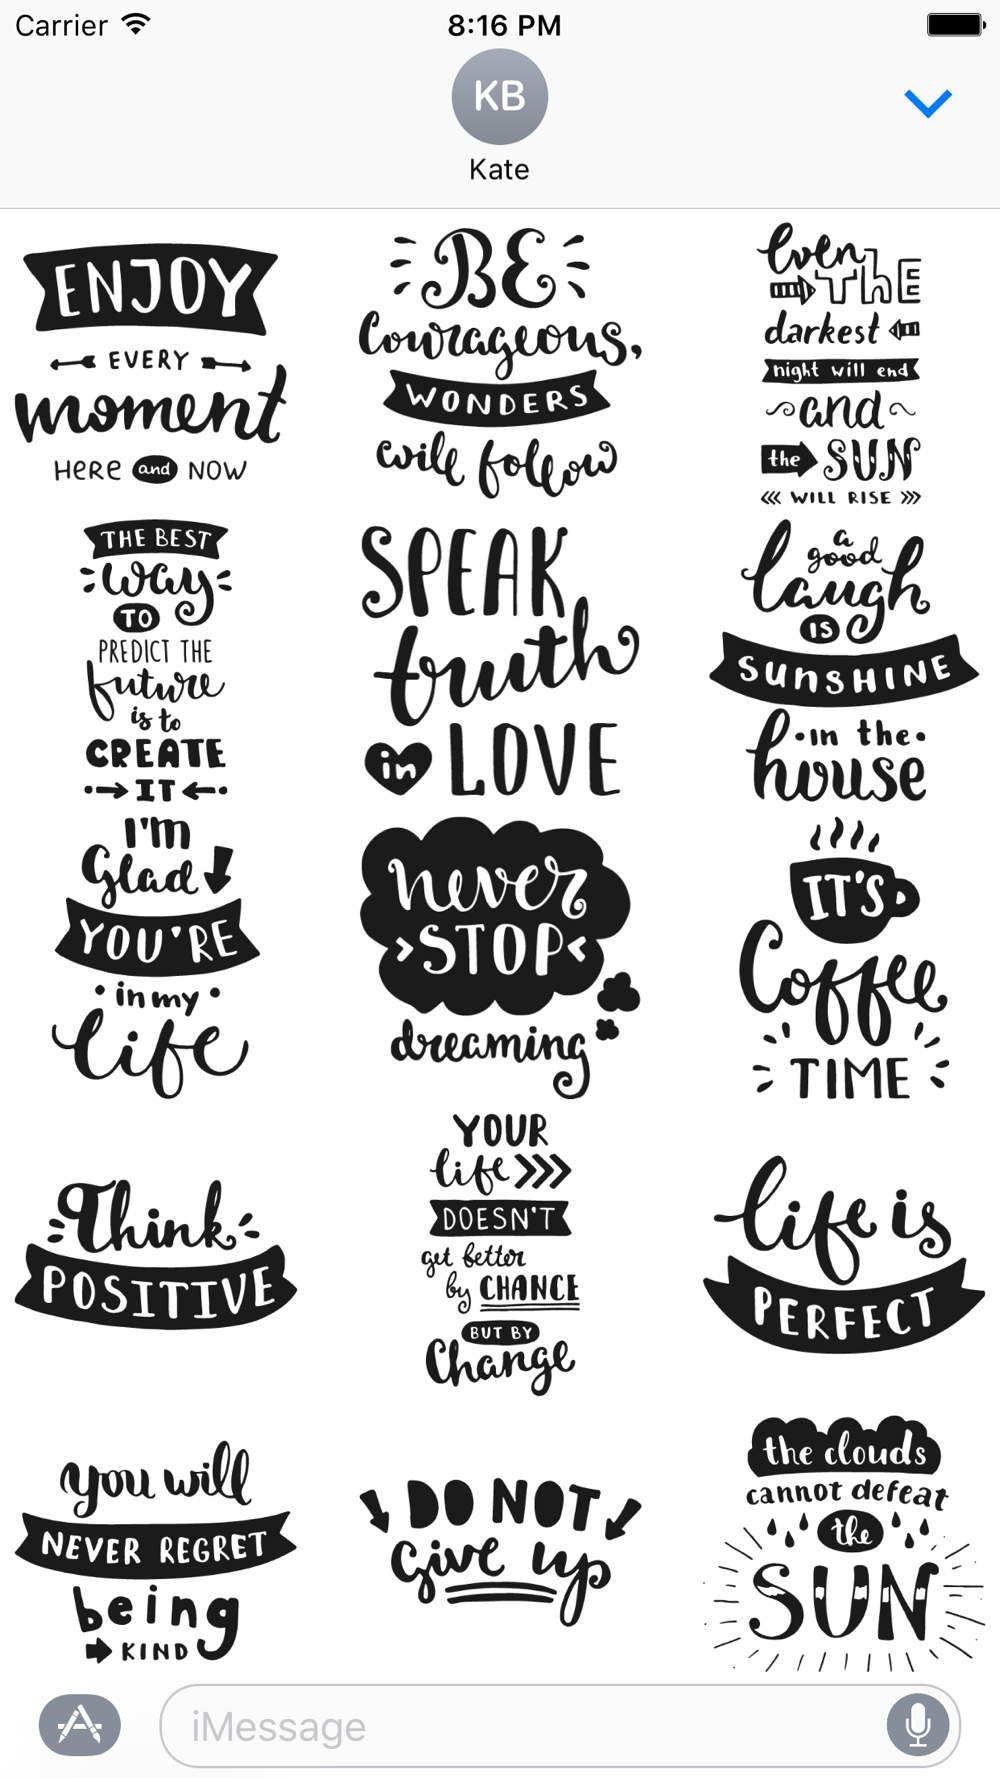 Carrier 8:16 PM
KB
Kate
ENJOY
EVERY
moment
HERE and NOW
BE
Courageous,
WONDERS
will follow
Even
THE
darkest
night will end
and
the SUN
WILL RISE
THE BEST
way
TO
PREDICT THE
future
is to
CREATE
IT
SPEAK
truth
in LOVE
a
good
laugh
IS
SUNSHINE
in the
house
I'm
Glad
YOU'RE
in my
life
never
STOP
dreaming
IT'S
Coffee
TIME
Think
POSITIVE
YOUR
life
DOESN'T
get better
by CHANCE
BUT BY
Change
life is
PERFECT
you will
NEVER REGRET
being
KIND
DO NOT
Give up
the clouds
cannot defeat
the
SUN
iMessage